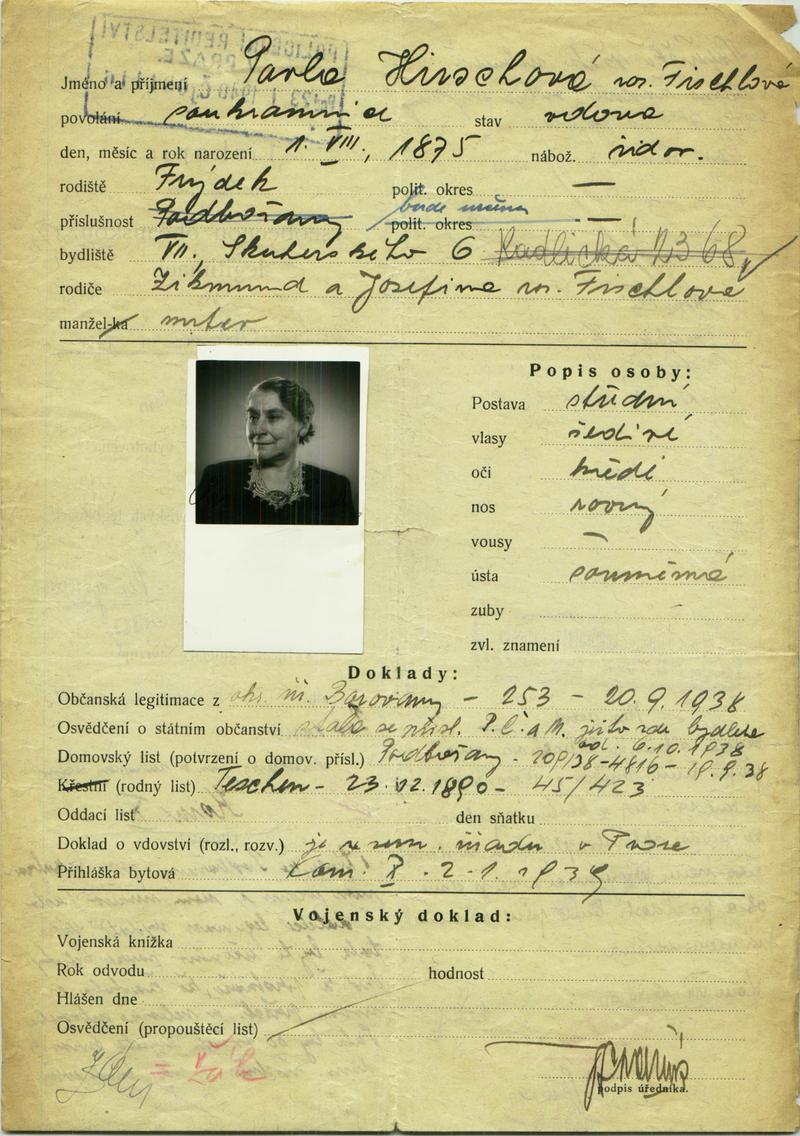 Jméno a příjmení Pavla Hirschová roz. Fischlová
povolání soukromnice stav vdova
den, měsíc a rok narození 1. VIII., 1875 nábož. židov.
rodiště Frýdek polit. okres —
příslušnost Podbořany polit. okres —
bydliště VII. Skuherského 6 Radlická
rodiče Zikmund a Josefina roz. Fischlová
manžel-ka mrtev
Popis osoby:
Postava střední
vlasy šedivé
oči hnědé
nos rovný
vousy —
ústa souměrná
zuby
zvl. znamení
Doklady:
Občanská legitimace z okr. - 253 - 20.9.1938
Osvědčení o státním občanství P. Č. a M. zde bydlete
Domovský list (potvrzení o domov. přísl.) Podbořany - 6.10.1938
Křestní (rodný list) Teschen - 45/423
Oddací list den sňatku
Doklad o vdovství (rozl., rozv.) je v v Praze
Přihláška bytová kom. X. 2-1. 1939
Vojenský doklad:
Vojenská knížka
Rok odvodu hodnost
Hlášen dne
Osvědčení (propouštěcí list)
podpis úředníka.